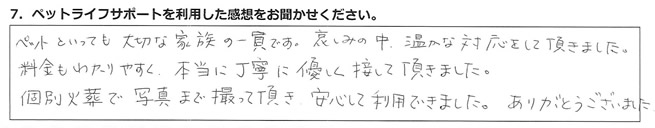 7. ペットライフサポートを利用した感想をお聞かせください。
ペットといっても大切な家族の一員です。哀しみの中、温かな対応をして頂きました。
料金もわかりやすく、本当に丁寧に優しく接して頂きました。
個別火葬で写真まで撮って頂き、安心して利用できました。ありがとうございました